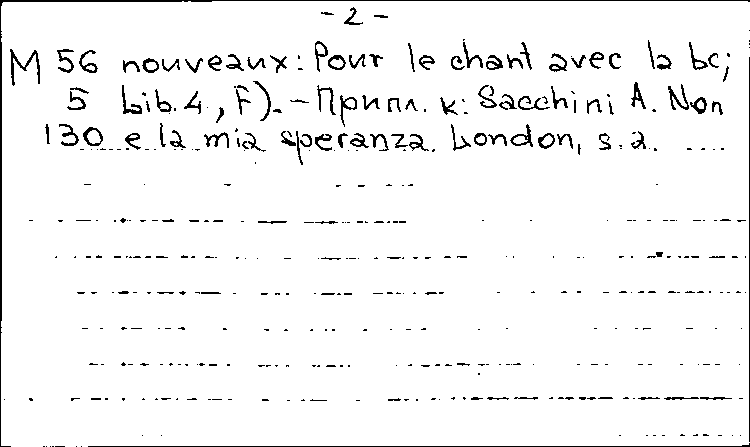 - 2 -
M 56 nouveaux: Pour le chant avec la bc;
5 Lib. 4, F). - Припл. к: Sacchini A. Non
130 e la mia speranza. London, s.a.